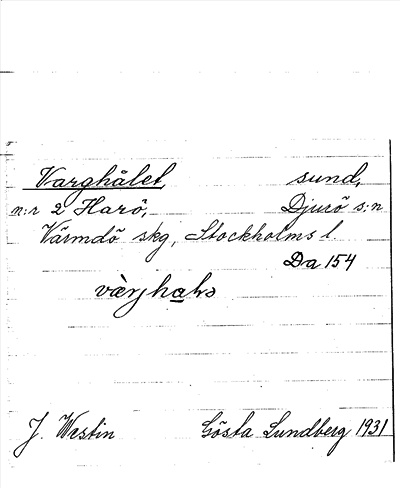 Varghålet, sund,
n:r 2 Harö, Djurö s:n
Värmdö skg, Stockholms l.
Da 154
J. Westin Gösta Lundberg 1931